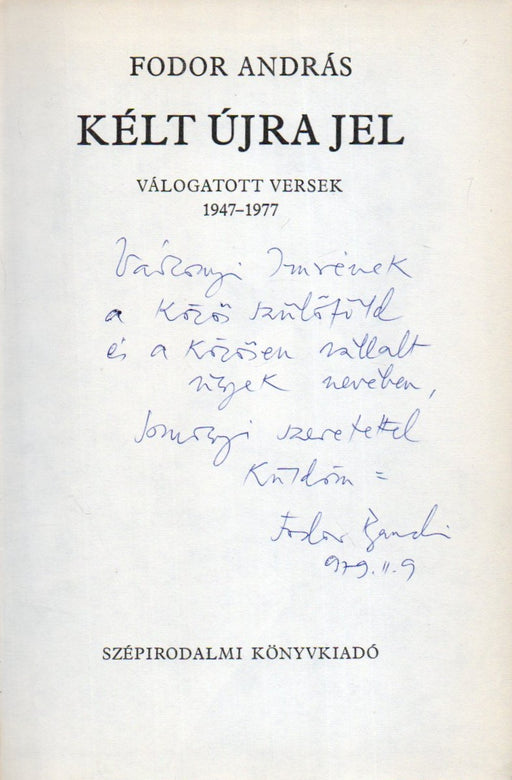 FODOR ANDRÁS
KÉLT ÚJRA JEL
VÁLOGATOTT VERSEK
1947–1977
Várkonyi Imrének
a közös szülőföld
és a közösen vállalt
ügyek nevében,
somogyi szeretettel
küldöm =
Fodor Bandi
979. II. 9
SZÉPIRODALMI KÖNYVKIADÓ